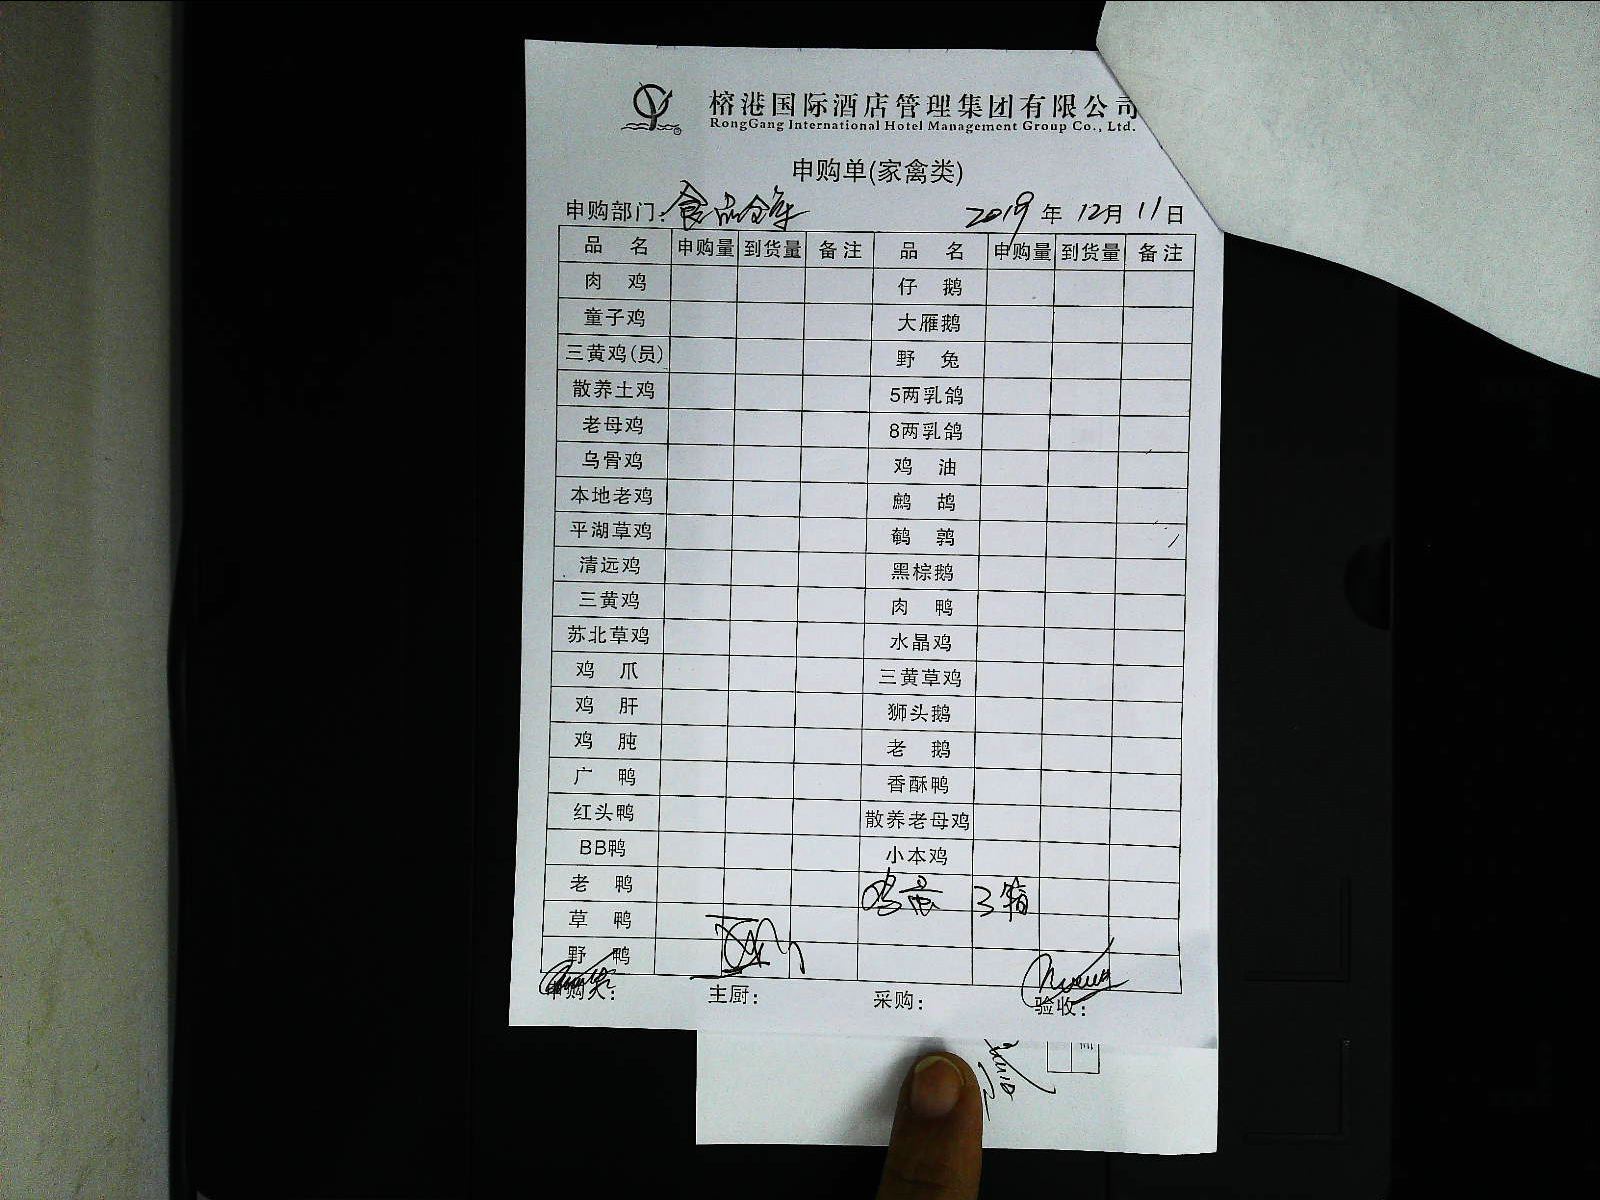 榕港国际酒店管理集团有限公司
RongGang International Hotel Management Group Co., Ltd.
申购单(家禽类)
申购部门：食品仓库 2019年12月11日
品名 申购量 到货量 备注 品名 申购量 到货量 备注
肉鸡 仔鹅
童子鸡 大雁鹅
三黄鸡(员) 野兔
散养土鸡 5两乳鸽
老母鸡 8两乳鸽
乌骨鸡 鸡油
本地老鸡 鹧鸪
平湖草鸡 鹌鹑
清远鸡 黑棕鹅
三黄鸡 肉鸭
苏北草鸡 水晶鸡
鸡爪 三黄草鸡
鸡肝 狮头鹅
鸡肫 老鹅
广鸭 香酥鸭
红头鸭 散养老母鸡
BB鸭 小本鸡
老鸭 鸡蛋 3箱
草鸭
野鸭
申购人： 主厨： 采购： 验收：